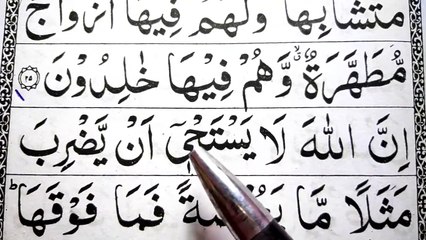 مُتَشَابِهًا وَلَهُمْ فِيْهَا اَزْوَاجٌ
مُّطَهَّرَةٌ ۙ وَّهُمْ فِيْهَا خٰلِدُوْنَ ﴿٢٥﴾
اِنَّ اللّٰهَ لَا يَسْتَحْيٖۤ اَنْ يَّضْرِبَ
مَثَلًا مَّا فَمَا فَوْقَهَا ؕ